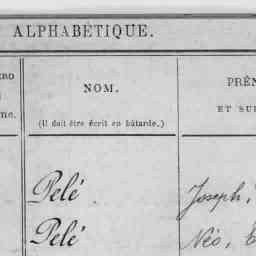 ALPHABÉTIQUE.
NOM.
(Il doit être écrit en bâtarde.)
PRÉN
ET SUR
Pelé
Joseph,
Pelé
Néo,